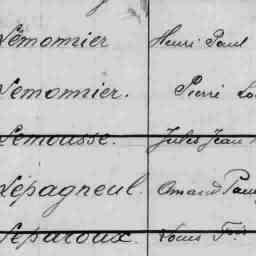 Lemonnier Henri Paul
Lemonnier. Pierre
Lemousse. Jules Jean
Lépagneul. Amand
Leparoux. Louis